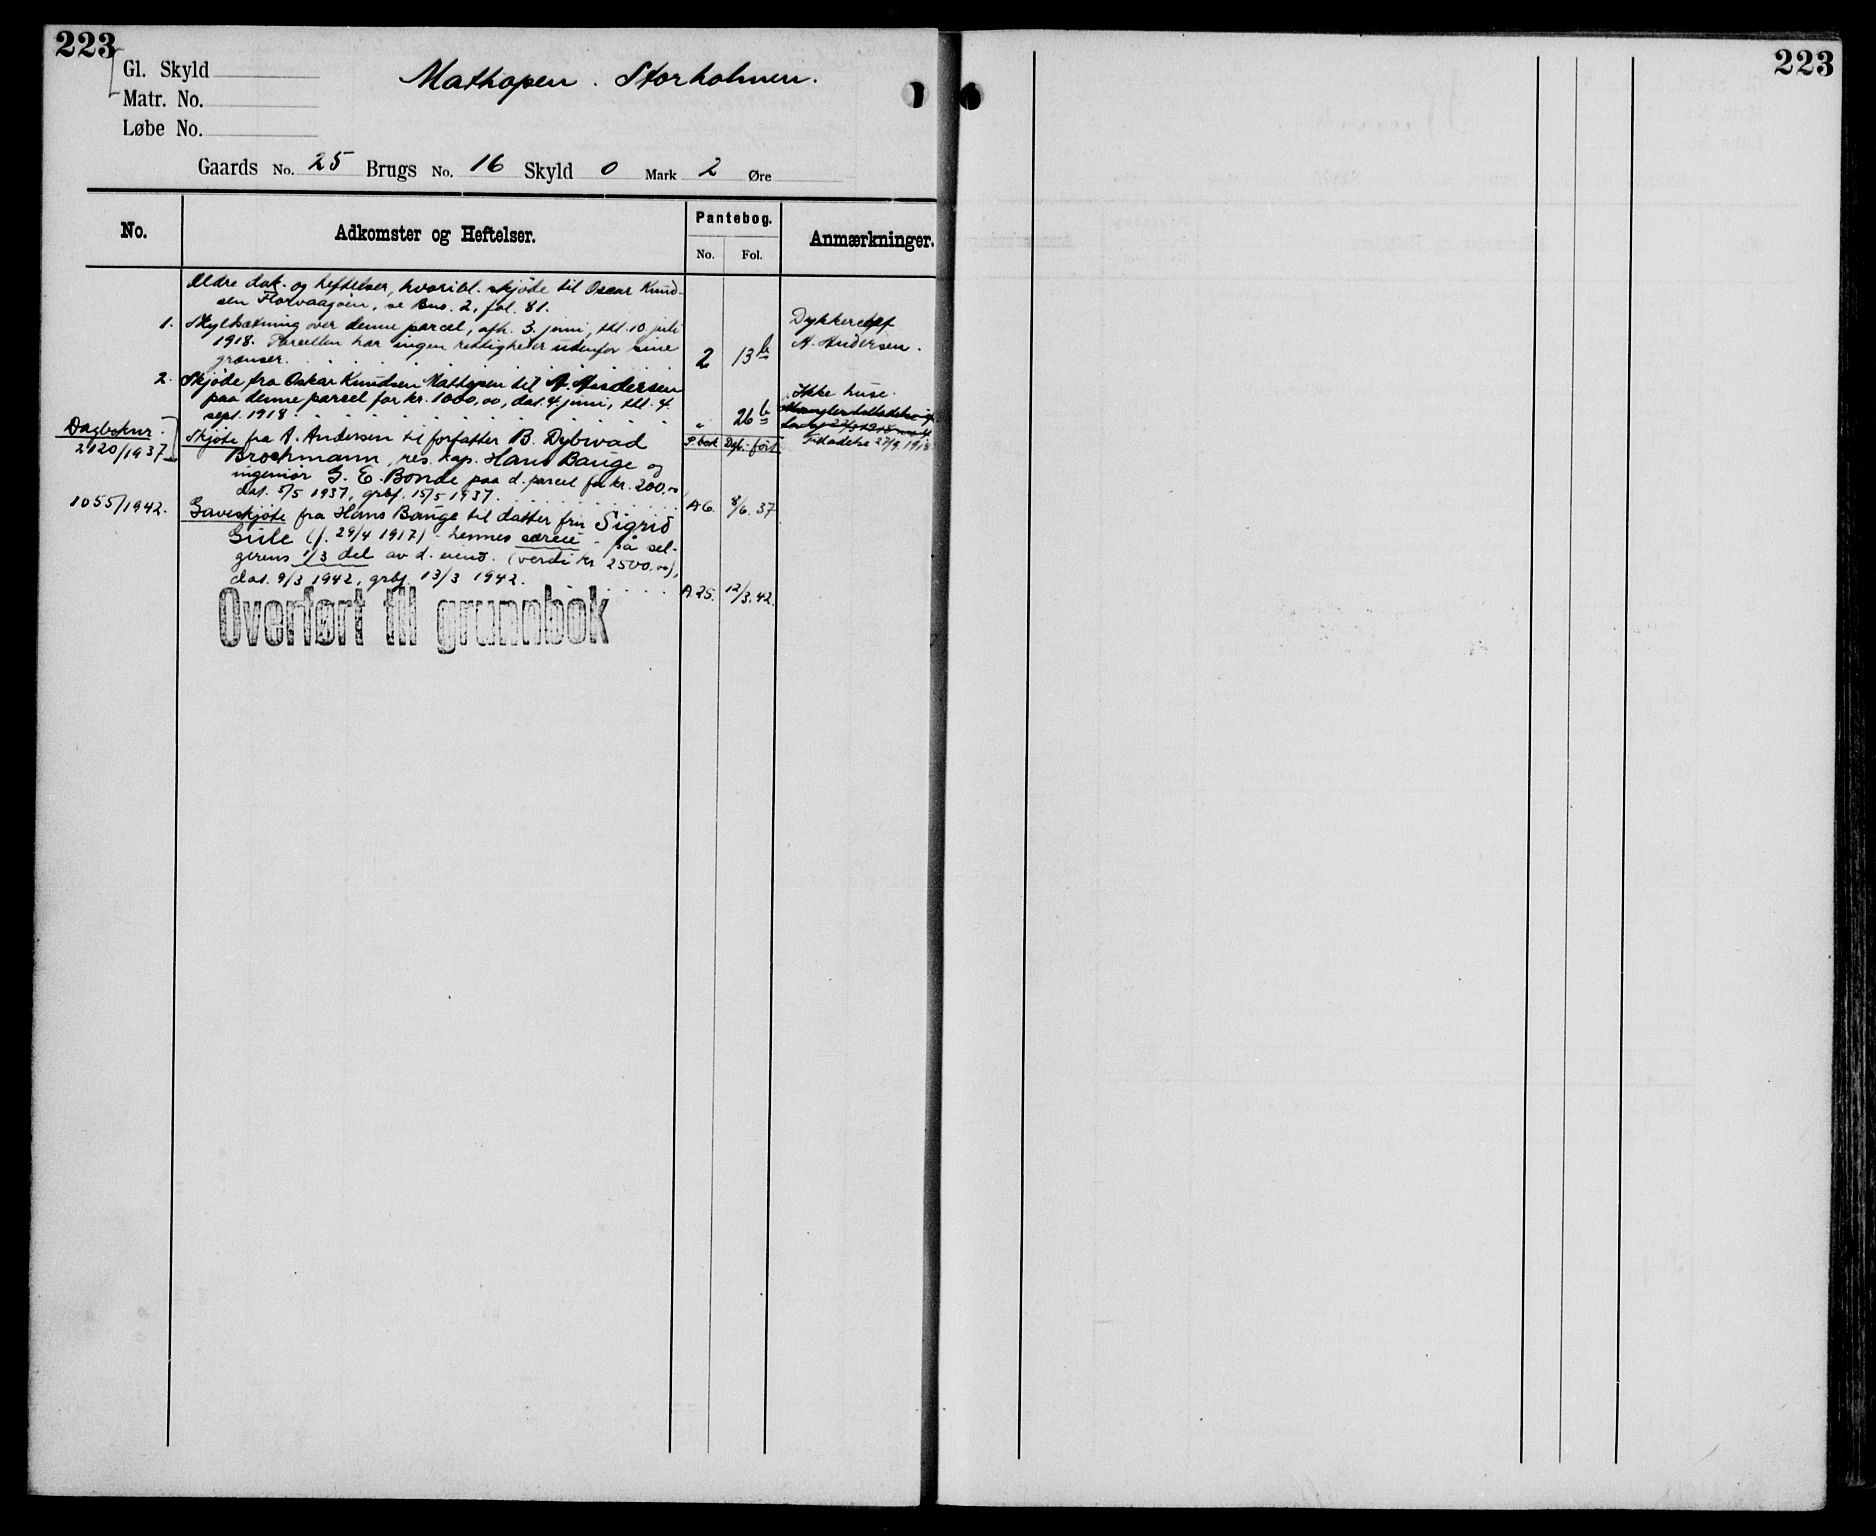 223
223
Gl. Skyld
Mathopen. Storholmen.
Matr. No.
Løbe No.
Gaards No. 25 Brugs No. 16 Skyld 0 Mark 2 Øre
No.
Adkomster og Heftelser.
Pantebog.
No. Fol.
Anmærkninger.
Ældre dok. og heftelser, hvoribl. skjøde til Oscar Knud-
sen Florvaagøen, se Bns. 2, fol. 81.
1. Skyldsætning over denne parcel, afh. 3. juni, thl. 10 juli
1918. Parcellen har ingen rettigheter udenfor sine
grænser. 2 13 b
Dykker
A. Andersen.
2. Skjøde fra Oskar Knudsen Mathopen til A. Andersen
paa denne parcel for kr. 1000,00, dat. 4. juni, thl. 4.
sept. 1918 " 26 b
Ikke huse.
Tilladelse 27/9 1918
Dagboknr.
P.bok Dep. ført
2120/1937 Skjøte fra A. Andersen til forfatter B. Dybwad
Brochmann, res. kap. Hans Bauge og
ingeniør G. E. Bonde paa d. parcel for kr. 200,00
dat. 5/5 1937, grbf. 15/5 1937. A6. 8/6. 37
1055/1942. Gaveskjøte fra Hans Bauge til datter fru Sigrid
Gule (f. 29/4 1917) - hennes særeie - på sel-
gerens 1/3 del av d. eiend. (verdi kr 2500.00),
dat. 9/3 1942, grbf. 13/3 1942. A 25. 12/3. 42.
Overført til grunnbok